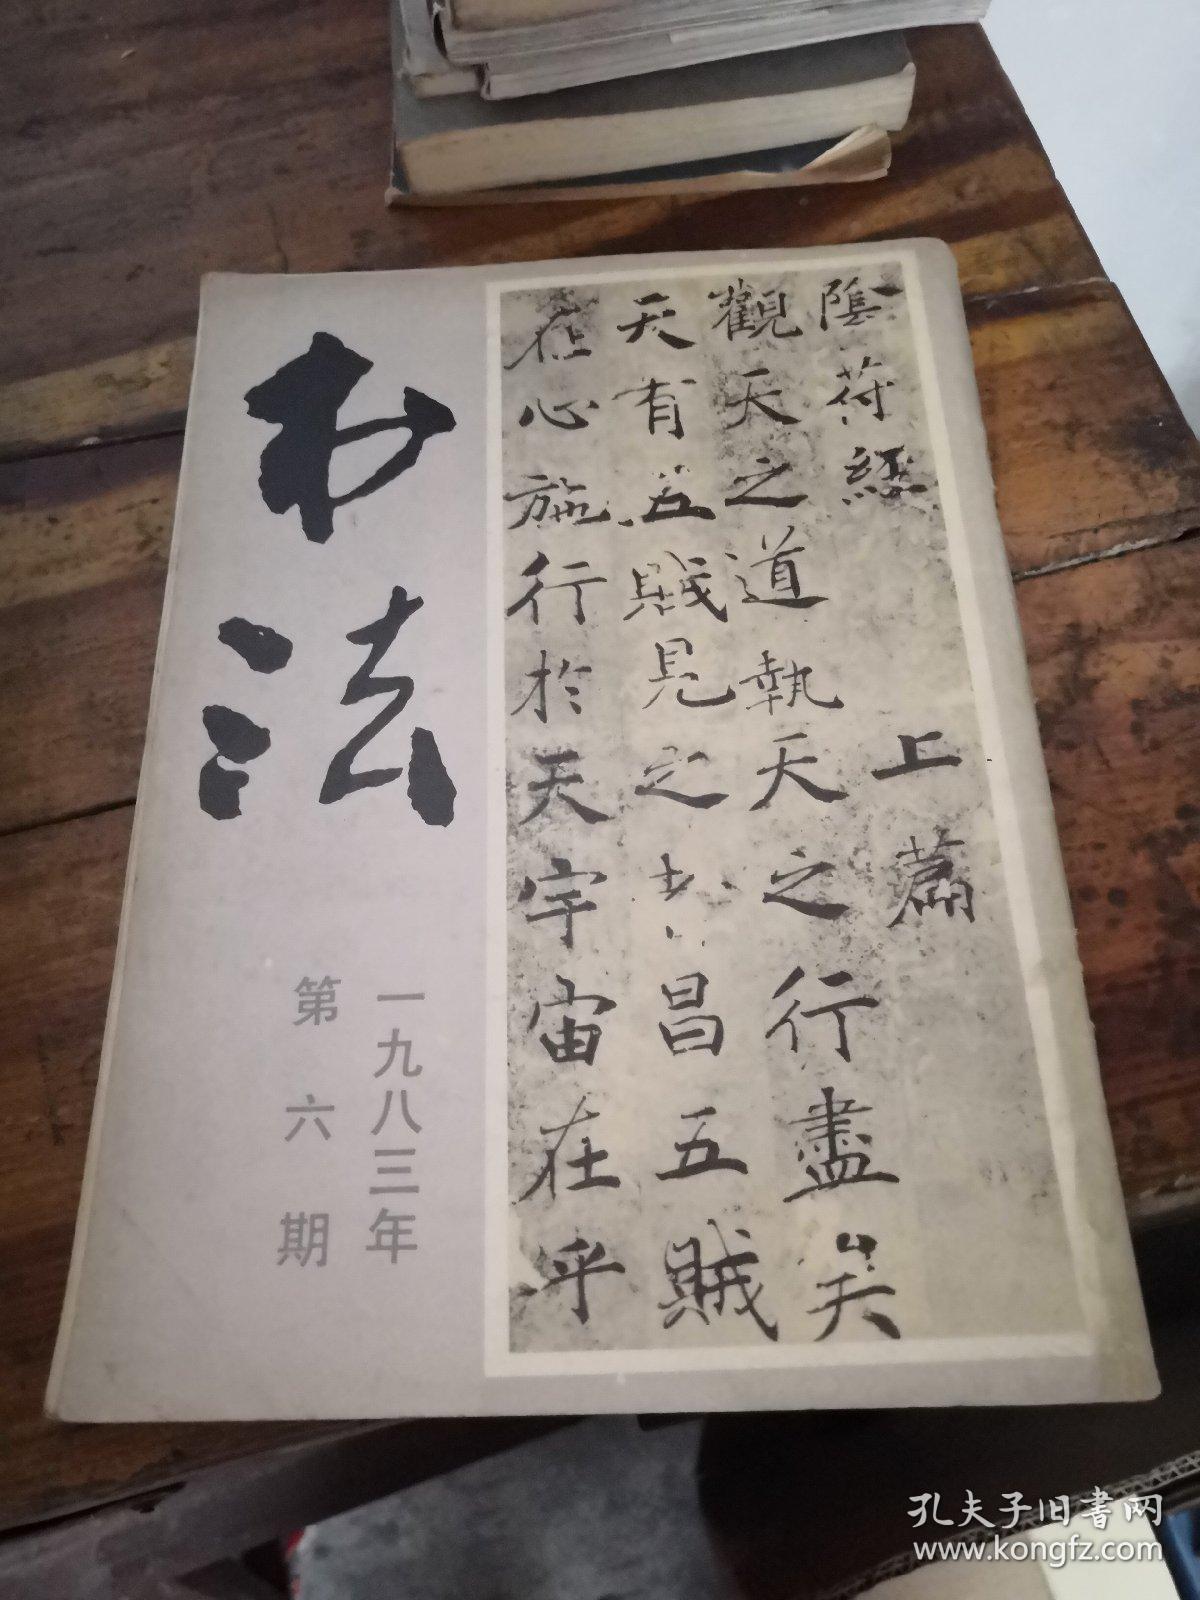 书法
一九八三年
第六期
陰符經 上篇
觀天之道執天之行盡矣
天有五賊見之者昌五賊
在心施行於天宇宙在乎
孔夫子旧書网
www.kongfz.com